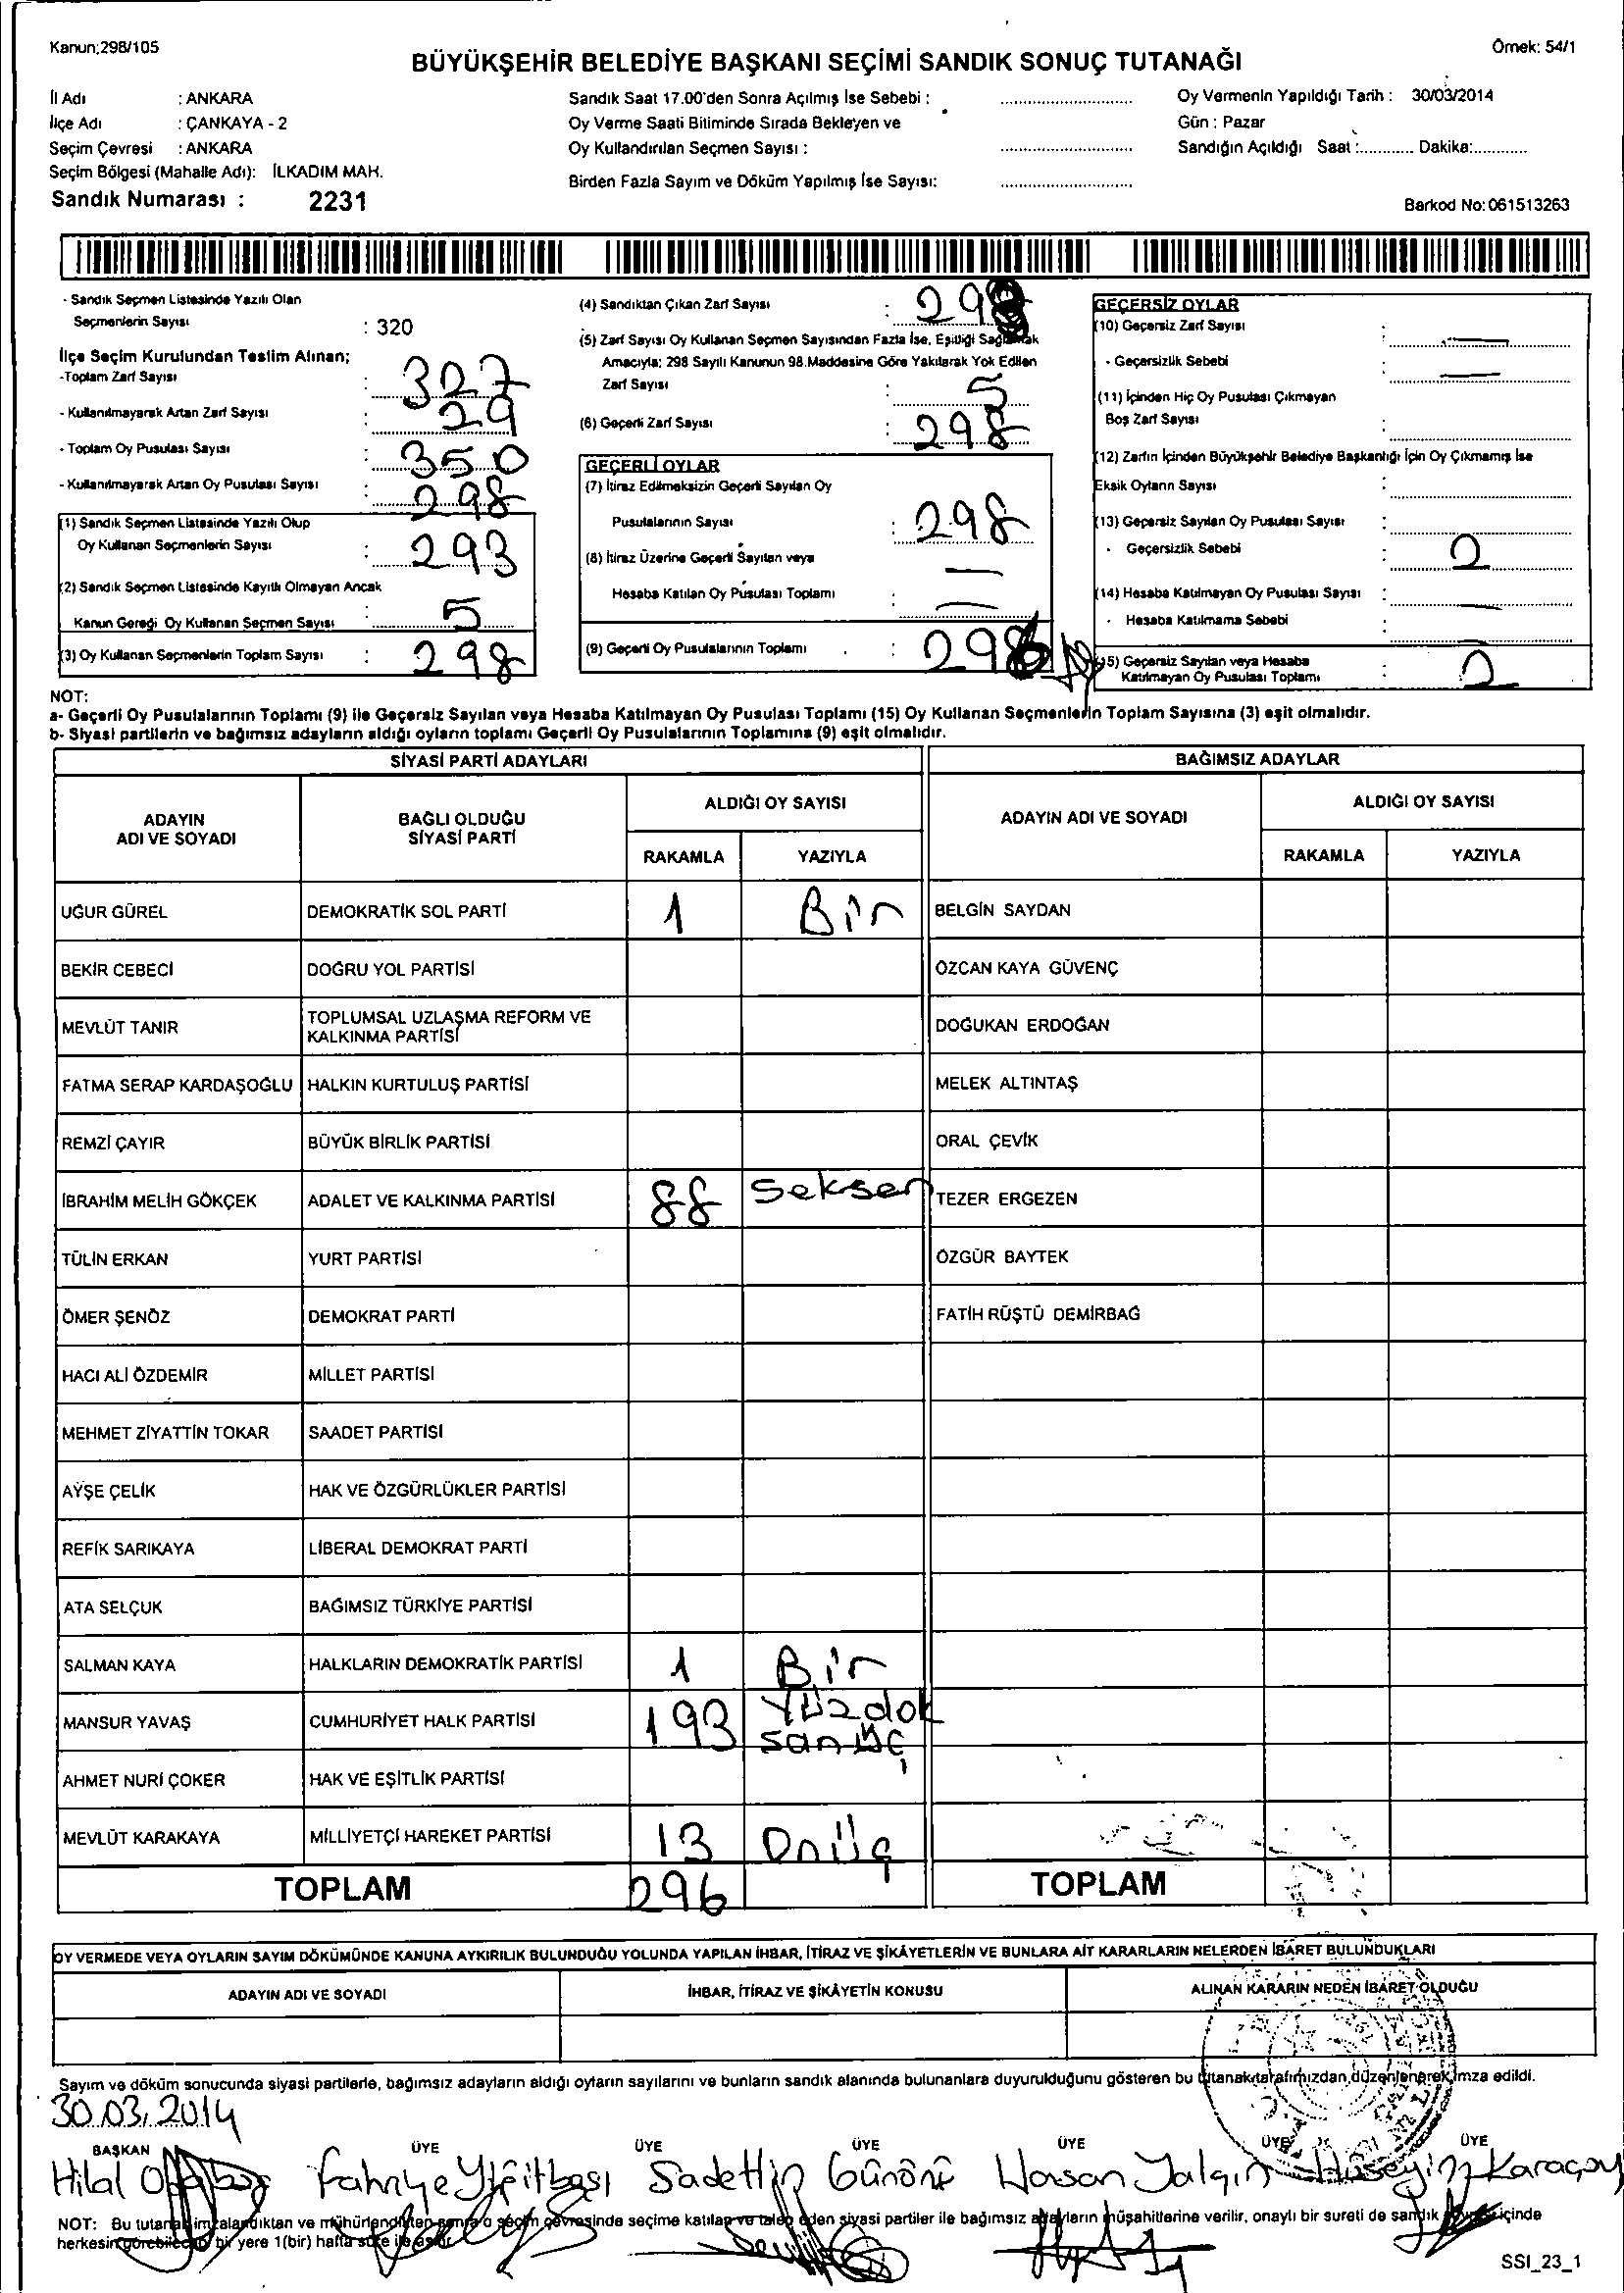 Kanun;298/105
Örnek: 54/1
BÜYÜKŞEHİR BELEDİYE BAŞKANI SEÇİMİ SANDIK SONUÇ TUTANAĞI
İl Adı : ANKARA
İlçe Adı : ÇANKAYA - 2
Seçim Çevresi : ANKARA
Seçim Bölgesi (Mahalle Adı): İLKADIM MAH.
Sandık Numarası : 2231
Sandık Saat 17.00'den Sonra Açılmış İse Sebebi :
Oy Verme Saati Bitiminde Sırada Bekleyen ve
Oy Kullandırılan Seçmen Sayısı :
Birden Fazla Sayım ve Döküm Yapılmış İse Sayısı:
Oy Vermenin Yapıldığı Tarih : 30/03/2014
Gün : Pazar
Sandığın Açıldığı Saat :............ Dakika:............
Barkod No: 061513263
- Sandık Seçmen Listesinde Yazılı Olan
Seçmenlerin Sayısı : 320
İlçe Seçim Kurulundan Teslim Alınan;
-Toplam Zarf Sayısı : 327
- Kullanılmayarak Artan Zarf Sayısı : 29
- Toplam Oy Pusulası Sayısı : 350
- Kullanılmayarak Artan Oy Pusulası Sayısı : 298
(1) Sandık Seçmen Listesinde Yazılı Olup
Oy Kullanan Seçmenlerin Sayısı : 293
(2) Sandık Seçmen Listesinde Kayıtlı Olmayan Ancak
Kanun Gereği Oy Kullanan Seçmen Sayısı : 5
(3) Oy Kullanan Seçmenlerin Toplam Sayısı : 298
(4) Sandıktan Çıkan Zarf Sayısı : 298
(5) Zarf Sayısı Oy Kullanan Seçmen Sayısından Fazla İse, Eşitliği Sağlamak
Amacıyla; 298 Sayılı Kanunun 98.Maddesine Göre Yakılarak Yok Edilen
Zarf Sayısı : 5
(6) Geçerli Zarf Sayısı : 298
GEÇERLİ OYLAR
(7) İtiraz Edilmeksizin Geçerli Sayılan Oy
Pusulalarının Sayısı : 298
(8) İtiraz Üzerine Geçerli Sayılan veya —
Hesaba Katılan Oy Pusulası Toplamı : —
(9) Geçerli Oy Pusulalarının Toplamı : 296
GEÇERSİZ OYLAR
(10) Geçersiz Zarf Sayısı : —
- Geçersizlik Sebebi —
(11) İçinden Hiç Oy Pusulası Çıkmayan
Boş Zarf Sayısı :
(12) Zarfın İçinden Büyükşehir Belediye Başkanlığı İçin Oy Çıkmamış İse
Eksik Oyların Sayısı :
(13) Geçersiz Sayılan Oy Pusulası Sayısı :
- Geçersizlik Sebebi : 2
(14) Hesaba Katılmayan Oy Pusulası Sayısı : —
- Hesaba Katılmama Sebebi
(15) Geçersiz Sayılan veya Hesaba
Katılmayan Oy Pusulası Toplamı : 2
NOT:
a- Geçerli Oy Pusulalarının Toplamı (9) ile Geçersiz Sayılan veya Hesaba Katılmayan Oy Pusulası Toplamı (15) Oy Kullanan Seçmenlerin Toplam Sayısına (3) eşit olmalıdır.
b- Siyasi partilerin ve bağımsız adayların aldığı oyların toplamı Geçerli Oy Pusulalarının Toplamına (9) eşit olmalıdır.
SİYASİ PARTİ ADAYLARI
BAĞIMSIZ ADAYLAR
ADAYIN
ADI VE SOYADI
BAĞLI OLDUĞU
SİYASİ PARTİ
ALDIĞI OY SAYISI
RAKAMLA YAZIYLA
ADAYIN ADI VE SOYADI
ALDIĞI OY SAYISI
RAKAMLA YAZIYLA
UĞUR GÜREL DEMOKRATİK SOL PARTİ 1 Bir BELGİN SAYDAN
BEKİR CEBECİ DOĞRU YOL PARTİSİ ÖZCAN KAYA GÜVENÇ
MEVLÜT TANIR TOPLUMSAL UZLAŞMA REFORM VE
KALKINMA PARTİSİ DOĞUKAN ERDOĞAN
FATMA SERAP KARDAŞOĞLU HALKIN KURTULUŞ PARTİSİ MELEK ALTINTAŞ
REMZİ ÇAYIR BÜYÜK BİRLİK PARTİSİ ORAL ÇEVİK
İBRAHİM MELİH GÖKÇEK ADALET VE KALKINMA PARTİSİ 88 Seksen TEZER ERGEZEN
TÜLİN ERKAN YURT PARTİSİ ÖZGÜR BAYTEK
ÖMER ŞENÖZ DEMOKRAT PARTİ FATİH RÜŞTÜ DEMİRBAĞ
HACI ALİ ÖZDEMİR MİLLET PARTİSİ
MEHMET ZİYATTİN TOKAR SAADET PARTİSİ
AYŞE ÇELİK HAK VE ÖZGÜRLÜKLER PARTİSİ
REFİK SARIKAYA LİBERAL DEMOKRAT PARTİ
ATA SELÇUK BAĞIMSIZ TÜRKİYE PARTİSİ
SALMAN KAYA HALKLARIN DEMOKRATİK PARTİSİ 1 Bir
MANSUR YAVAŞ CUMHURİYET HALK PARTİSİ 193 Yüzdok
sanüç
AHMET NURİ ÇOKER HAK VE EŞİTLİK PARTİSİ
MEVLÜT KARAKAYA MİLLİYETÇİ HAREKET PARTİSİ 13 Onüç
TOPLAM 296 TOPLAM
OY VERMEDE VEYA OYLARIN SAYIM DÖKÜMÜNDE KANUNA AYKIRILIK BULUNDUĞU YOLUNDA YAPILAN İHBAR, İTİRAZ VE ŞİKÂYETLERİN VE BUNLARA AİT KARARLARIN NELERDEN İBARET BULUNDUKLARI
ADAYIN ADI VE SOYADI İHBAR, İTİRAZ VE ŞİKÂYETİN KONUSU ALINAN KARARIN NEDEN İBARET OLDUĞU
Sayım ve döküm sonucunda siyasi partilerle, bağımsız adayların aldığı oyların sayılarını ve bunların sandık alanında bulunanlara duyurulduğunu gösteren bu tutanak tarafımızdan düzenlenerek imza edildi.
30.03.2014
BAŞKAN ÜYE ÜYE ÜYE ÜYE ÜYE ÜYE
Hilal Fahriye Yiğitbaşı Sadettin Günönü Hasan Yalçın Hüseyin Karaçay
NOT: Bu tutanak imzalandıktan ve mühürlendikten sonra o seçim çevresinde seçime katılan ve talep eden siyasi partiler ile bağımsız adayların müşahitlerine verilir, onaylı bir sureti de sandık çevresi içinde
herkesin görebileceği bir yere 1(bir) hafta süre ile asılır.
SSI_23_1